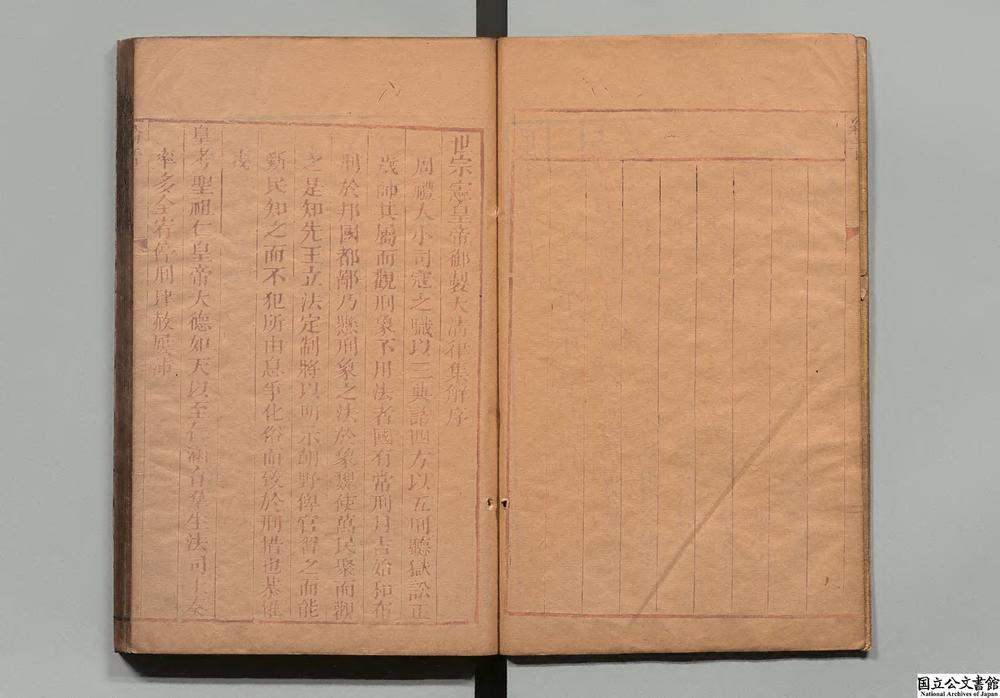 世宗憲皇帝御製大清律集解序
周禮大小司寇之職以三典詰四方以五刑聽獄訟正
歲帥其屬而觀刑象不用法者國有常刑月吉始和布
刑於邦國都鄙乃懸刑象之法於象魏使萬民聚而觀
之是知先王立法定制將以明示朝野俾官習之而能
斷民知之而不犯所由息爭化俗而致於刑措也恭惟
我
皇考聖祖仁皇帝大德如天以至仁涵育羣生法司上奏
率多全宥停刑肆赦
国立公文書館
National Archives of Japan